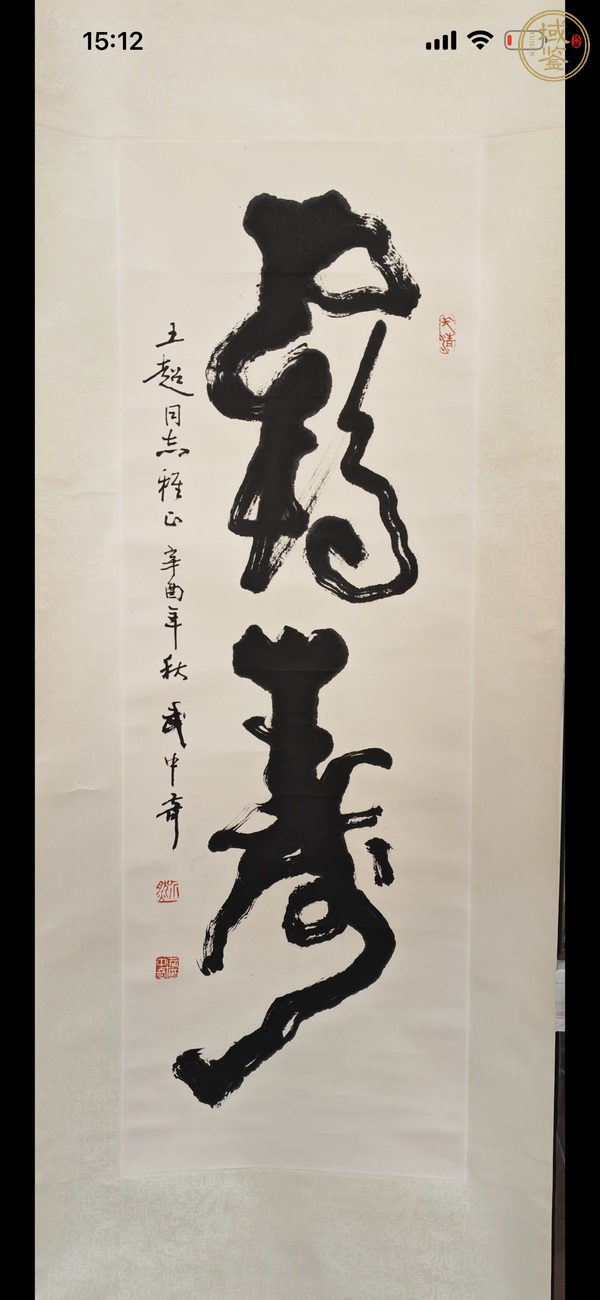 15:12
域鉴
鶴壽
王超同志雅正 辛酉年秋 武中奇